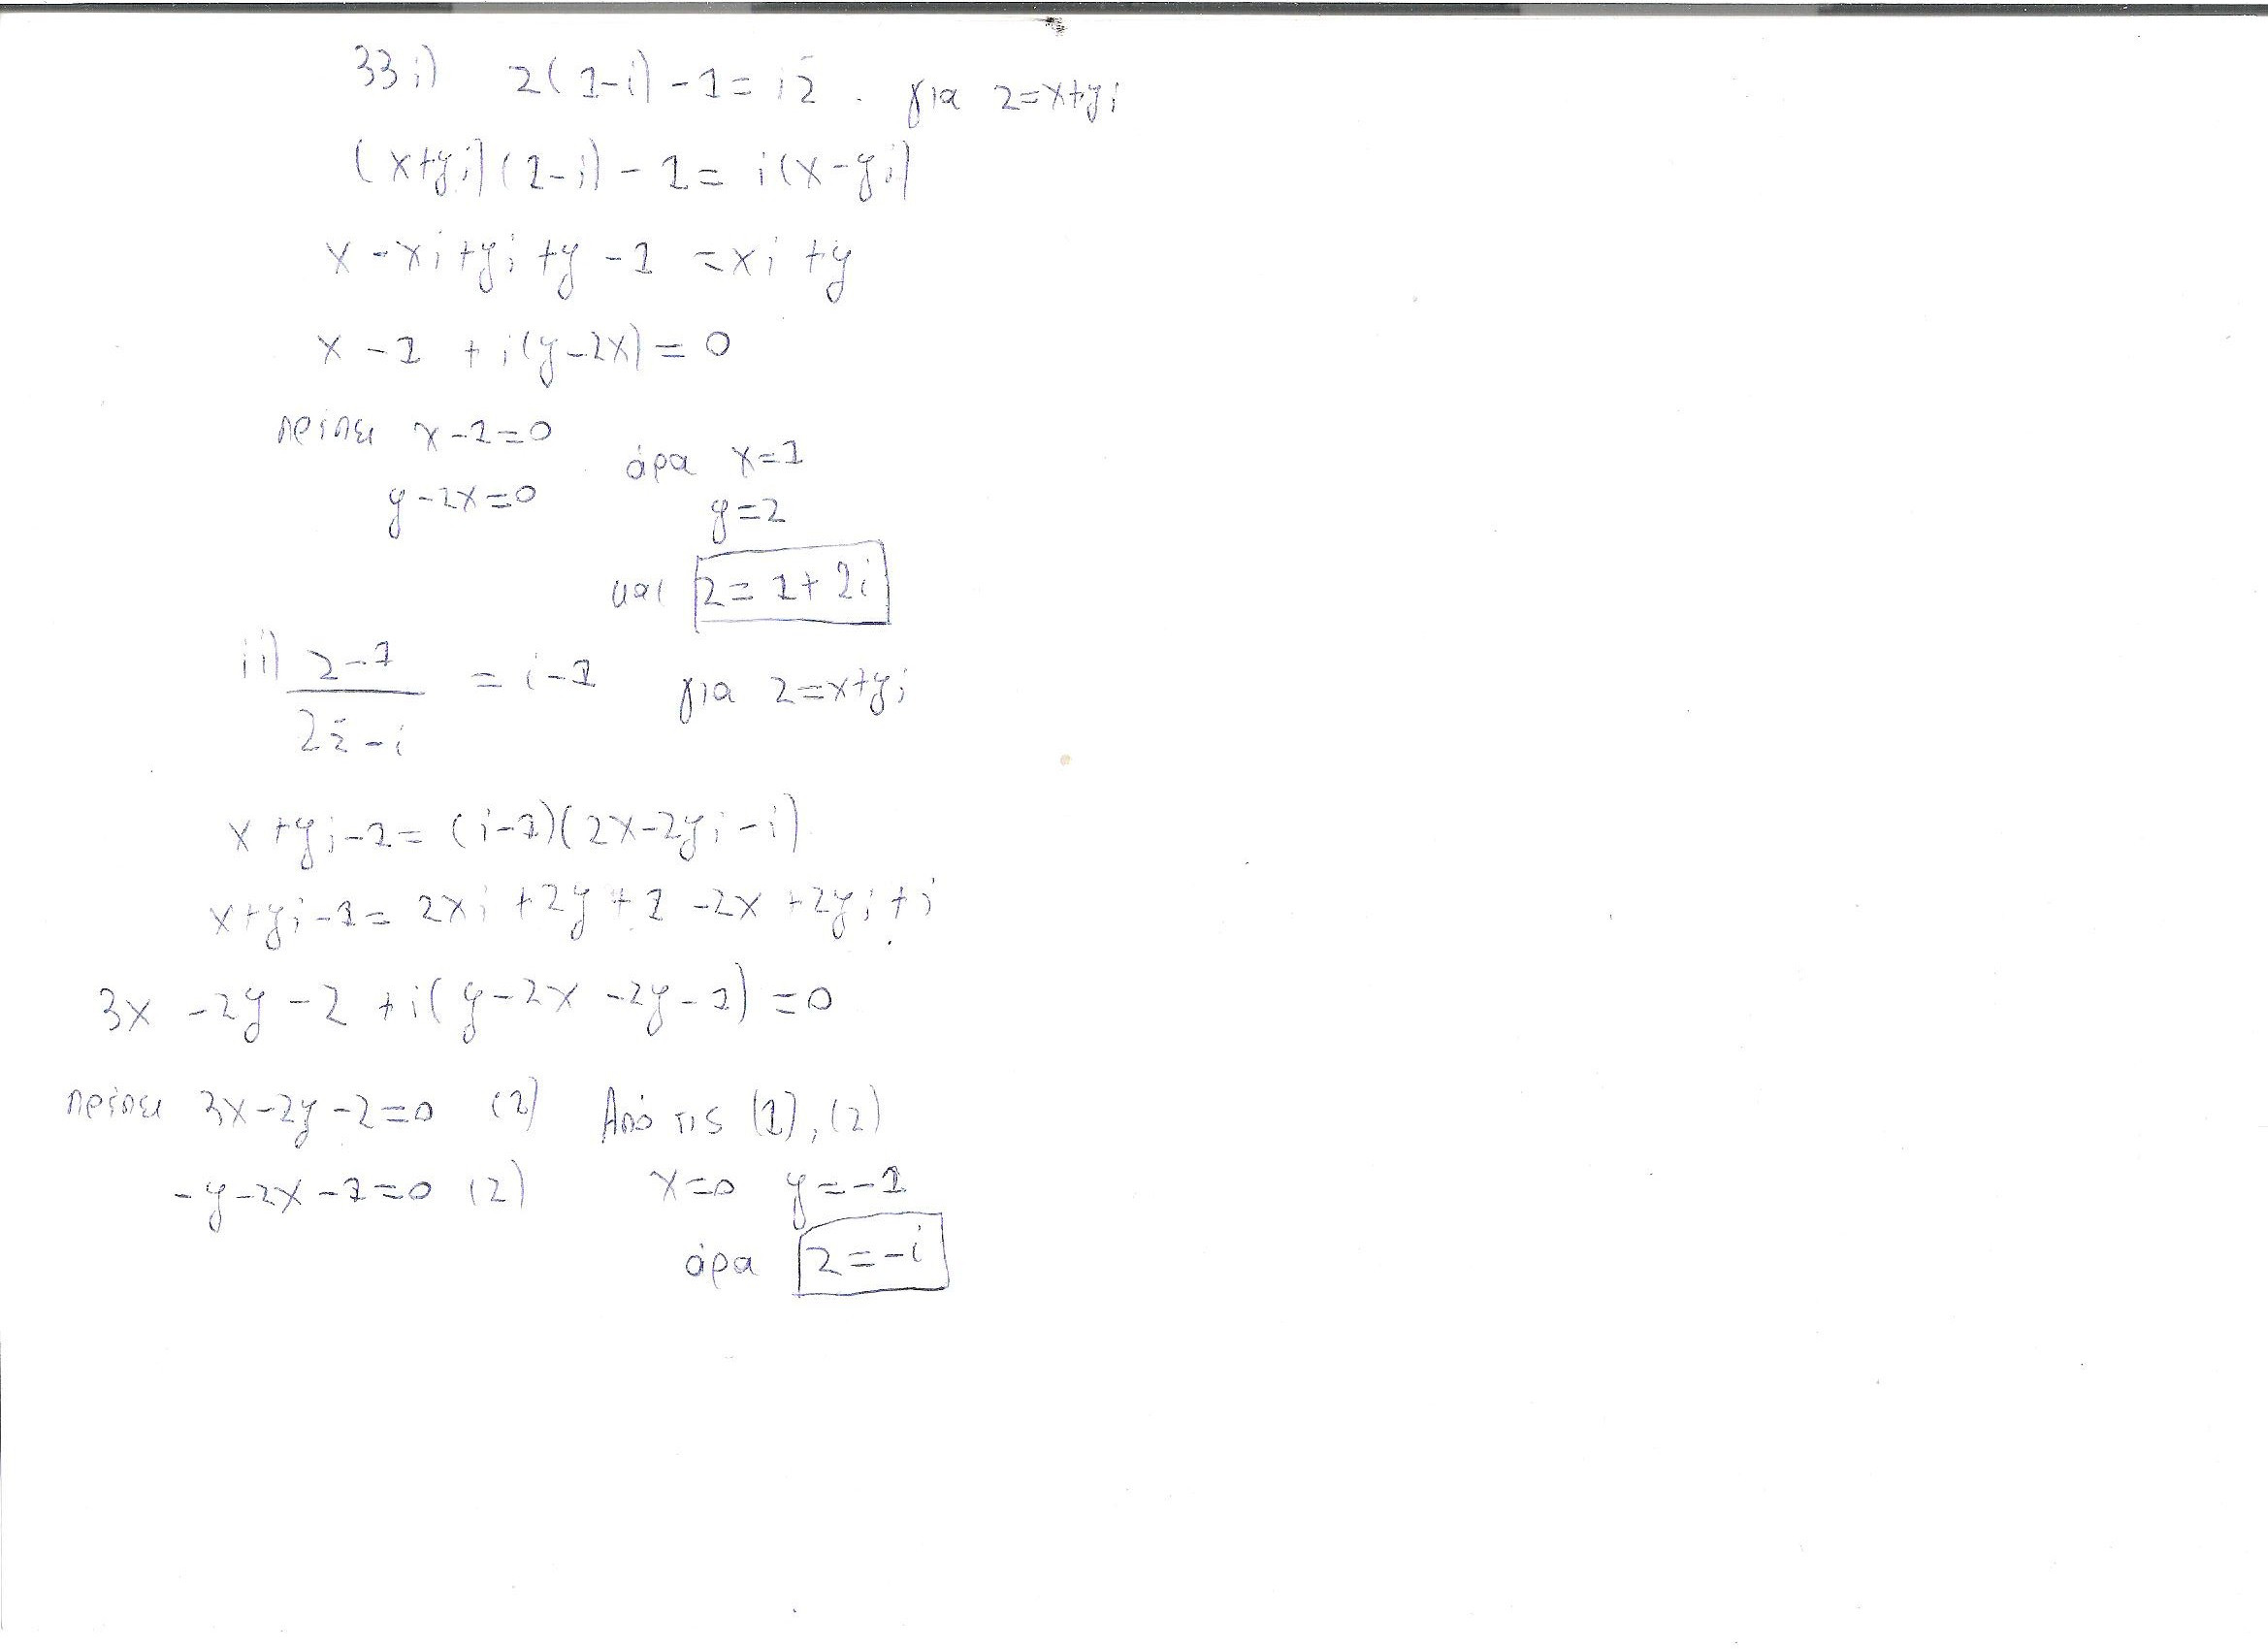 33 i) z(1-i) -1 = i z̄ . για z=x+yi
(x+yi)(1-i) -1 = i(x-yi)
x -xi +yi +y -1 = xi +y
x -1 + i(y-2x) = 0
πρέπει x-1=0
y-2x=0
άρα x=1
y=2
και z = 1+2i
ii) z-1 / 2z̄-i = i-1 για z=x+yi
x+yi-1 = (i-1)(2x-2yi-i)
x+yi-1 = 2xi +2y +1 -2x +2yi +i
3x -2y -2 +i(y-2x -2y-1) =0
πρέπει 3x-2y-2=0 (1) Από τις (1), (2)
-y-2x-1=0 (2) x=0 y=-1
άρα z=-i